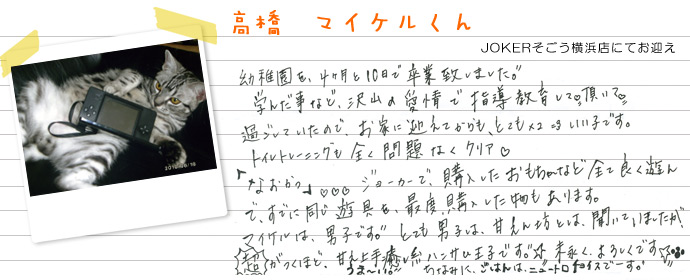 高橋 マイケルくん
JOKERそごう横浜店にてお迎え
幼稚園を、4ヶ月と10日で卒業致しました。
学んだ事など、沢山の愛情で指導教育して♡頂いて♡
過ごしていたので、お家に迎えてからも、とても×2 いい子です。
トイレトレーニングも全く問題なくクリア♡
「なおかつ」♡♡♡ ジョーカーで、購入したおもちゃなど全て良く遊ん
で、すでに同じ遊具を、最度、購入した物もあります。
マイケルは、男子です。とても男子は、甘えん坊とは、聞いていましたが、
☆超☆がつくほど、甘え上手 癒し系ハンサム王子です。末永く、よろしくです
ちなみに、ごはんはニュートロチョイスでーす。